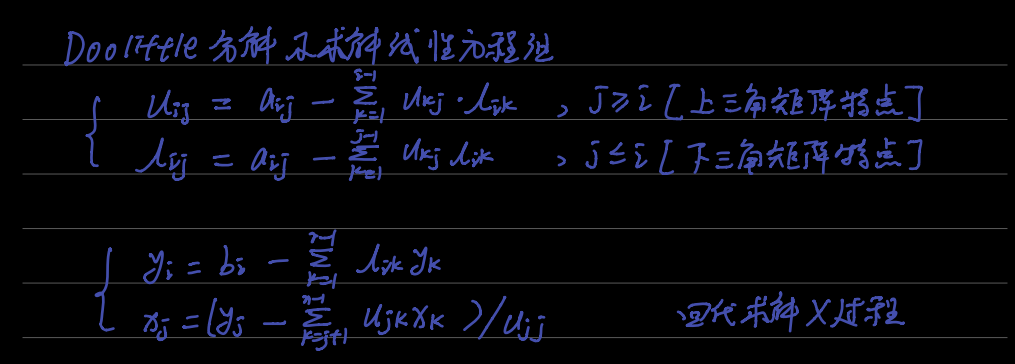 Doolittle 分解及求解线性方程组
u_{ij} = a_{ij} - \sum_{k=1}^{i-1} u_{kj} · l_{ik} , j ≥ i [上三角矩阵特点]
l_{ij} = a_{ij} - \sum_{k=1}^{j-1} u_{kj} l_{ik} , j ≤ i [下三角矩阵特点]
y_i = b_i - \sum_{k=1}^{i-1} l_{ik} y_k
x_j = (y_j - \sum_{k=j+1} u_{jk} x_k) / u_{jj} 回代求解 X 过程